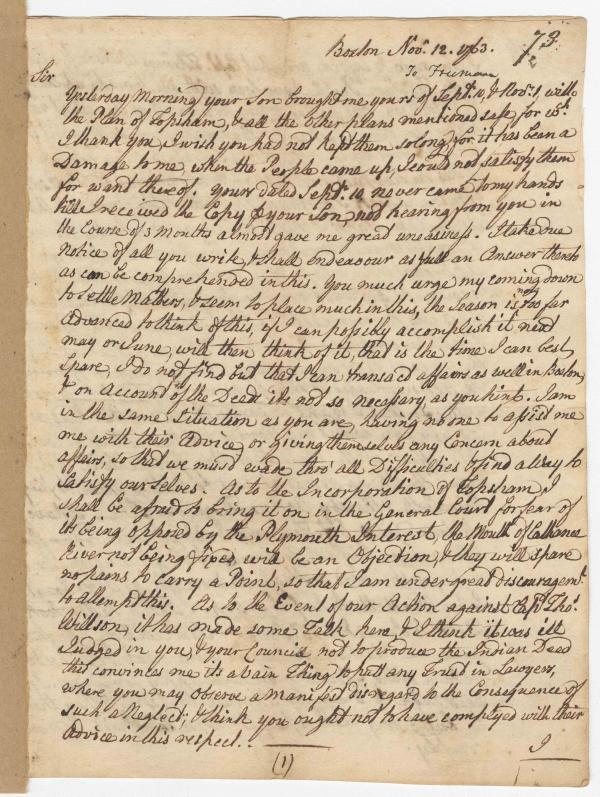 73
2
Boston Nov.r 12. 1763.
To Freeman
Sir
Yesterday Morning your Son brought me yours of Sept.r 10, & Nov.r 1, with
the Plan of Topsham, & all the other plans mentioned safe, for wch.
I thank you, I wish you had not kept them so long, for it has been a
Damage to me, when the People came up, I could not satisfy them
for want thereof. yours dated Sept.r 10 never came to my hands
till I received the Copy & your Son, not hearing from you in
the Course of 3 Months almost gave me great uneasiness. I take due
notice of all you write, & shall endeavour as full an Answer thereto
as can be comprehended in this. You much urge my coming down
to settle Matters, & seem to place much in this, the Season is now too far
Advanced to think of this, if I can possibly accomplish it next
may or June, will then think of it, that is the time I can best
Spare, I do not find but that I can transact affairs as well in Boston,
& on Account of the Deeds its not so necessary as you hint. I am
in the same Situation as you are, having no one to assist me
me with their Advice, or giving themselves any Concern about
affairs, so that we must wade thro' all Difficulties & find a Way to
Satisfy ourselves. As to the Incorporation of Topsham, I
shall be afraid to bring it on in the General Court for fear of
its being opposed by the Plymouth Interest, the Mouth of Cathance
River not being fixed will be an Objection, & they will spare
no pains to carry a Point, so that I am under great discouragemt.
to attempt this. As to the Event of our Action against Capt. Tho.s
Willson, it has made some Talk here, & I think it was ill
Judged in you, & your Council not to produce the Indian Deed
this convinces me its a vain Thing to putt any Trust in Lawyers,
where you may observe a Manifest disregard to the Consequence of
such a Neglect; & think you ought not to have complyed with their
Advice in this respect.
I
(1)